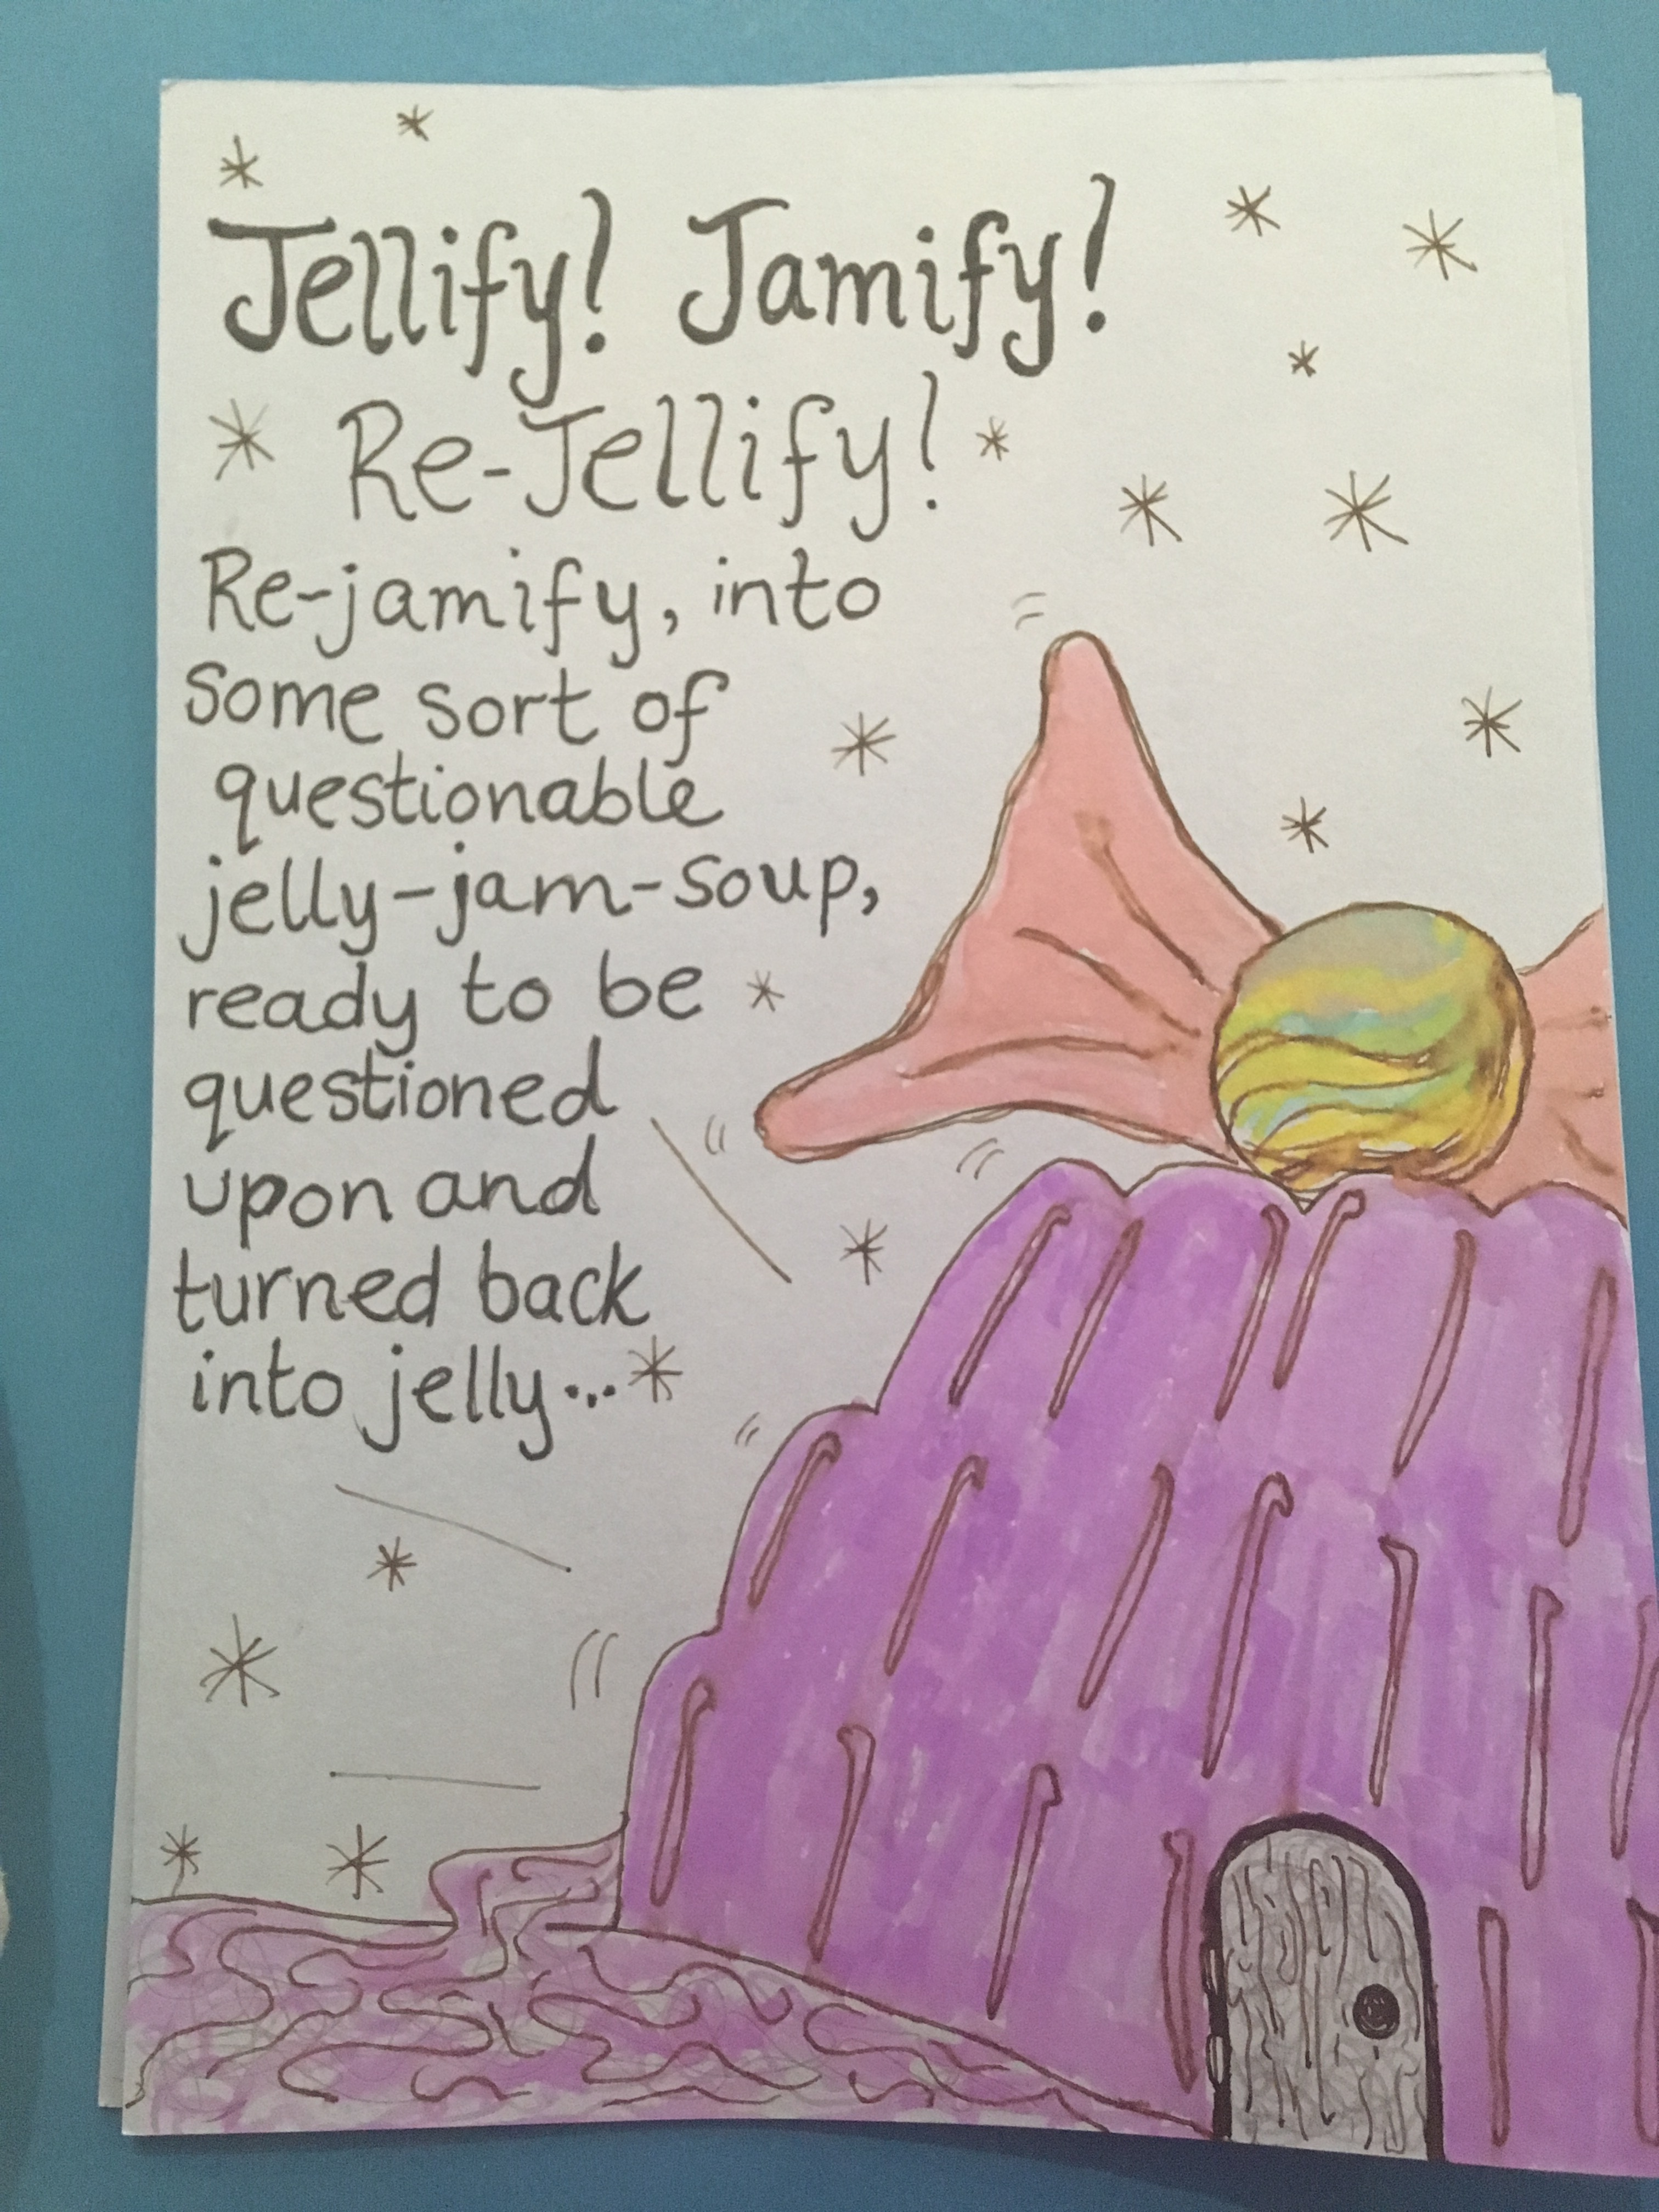 Jellify! Jamify!
Re-Jellify!
Re-jamify, into
some sort of
questionable
jelly-jam-soup,
ready to be
questioned
upon and
turned back
into jelly...